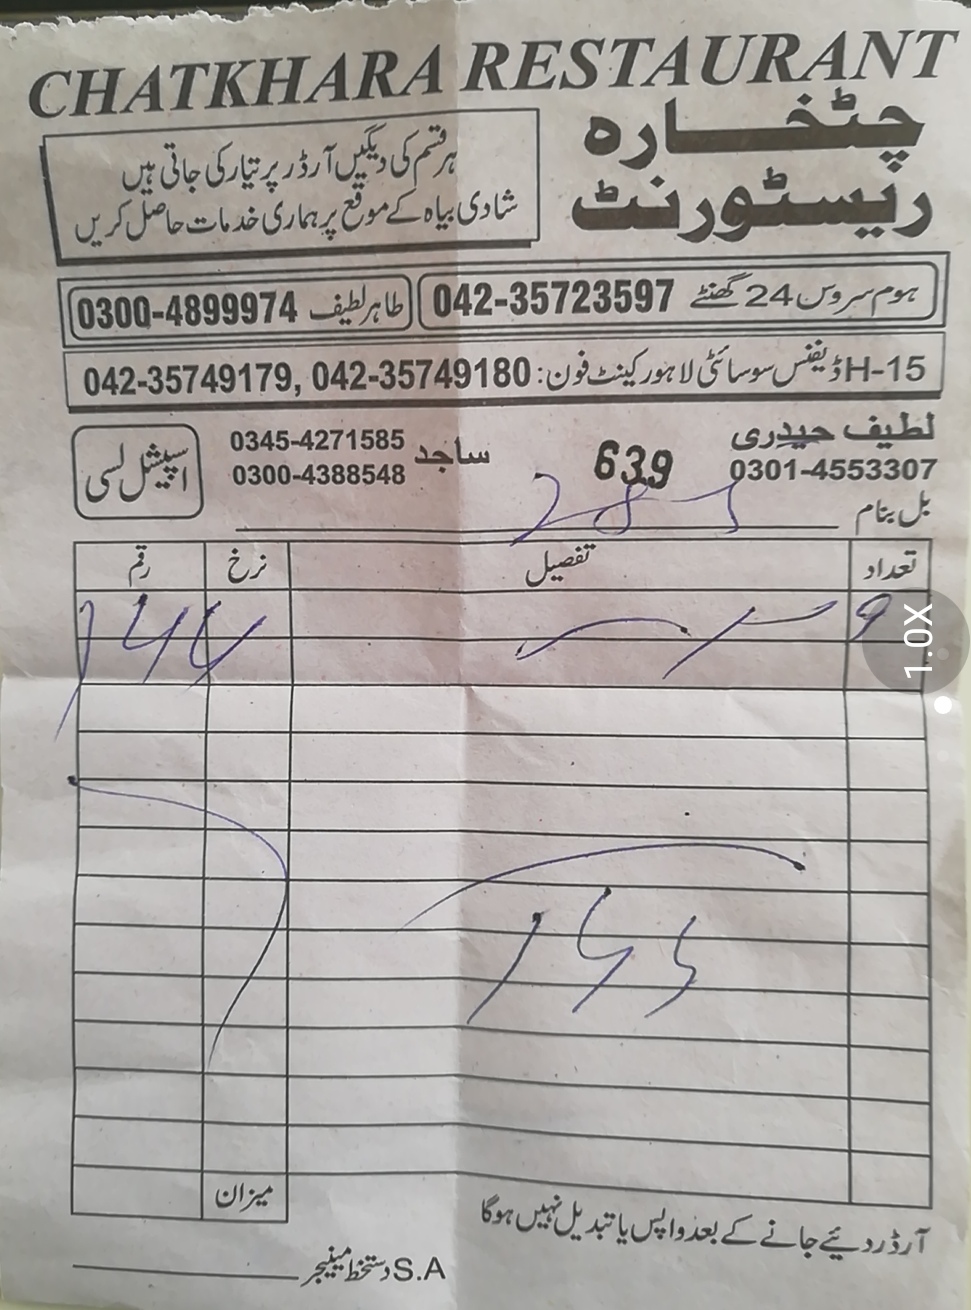 CHATKHARA RESTAURANT
چٹخارہ
ریسٹورنٹ
ہر قسم کی دیگیں آرڈر پر تیار کی جاتی ہیں
شادی بیاہ کے موقع پر ہماری خدمات حاصل کریں
ہوم سروس 24 گھنٹے 042-35723597 طاہر لطیف 0300-4899974
15-H ڈیفنس سوسائٹی لاہور کینٹ فون: 042-35749180 ,042-35749179
لطیف حیدری
0301-4553307
639
ساجد 0345-4271585
0300-4388548
اسپیشل لسی
بل بنام
تعداد تفصیل نرخ رقم
میزان
آرڈر دئیے جانے کے بعد واپس یا تبدیل نہیں ہوگا
S.A دستخط مینیجر
1.0X